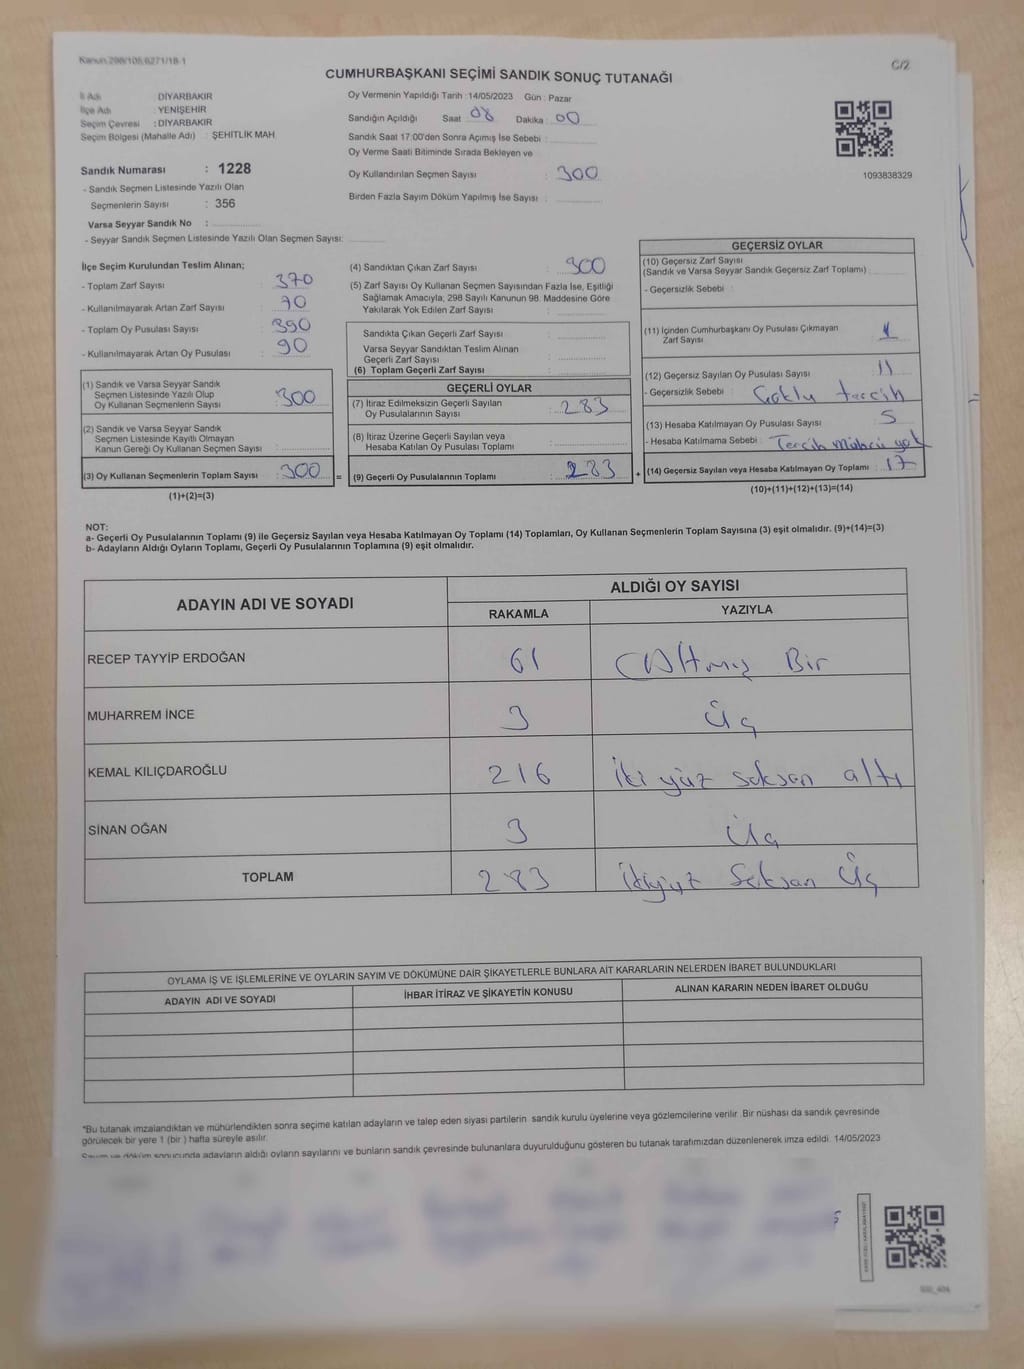 Kanun 298/105,6271/18-1
C/2
CUMHURBAŞKANI SEÇİMİ SANDIK SONUÇ TUTANAĞI
İl Adı : DİYARBAKIR
İlçe Adı : YENİŞEHİR
Seçim Çevresi : DİYARBAKIR
Seçim Bölgesi (Mahalle Adı) : ŞEHİTLİK MAH.
Sandık Numarası : 1228
- Sandık Seçmen Listesinde Yazılı Olan
Seçmenlerin Sayısı : 356
Varsa Seyyar Sandık No :
- Seyyar Sandık Seçmen Listesinde Yazılı Olan Seçmen Sayısı:
Oy Vermenin Yapıldığı Tarih :14/05/2023 Gün : Pazar
Sandığın Açıldığı Saat 08 Dakika : 00
Sandık Saat 17:00'den Sonra Açımış İse Sebebi :
Oy Verme Saati Bitiminde Sırada Bekleyen ve
Oy Kullandırılan Seçmen Sayısı : 300
Birden Fazla Sayım Döküm Yapılmış İse Sayısı :
1093838329
İlçe Seçim Kurulundan Teslim Alınan;
- Toplam Zarf Sayısı : 370
- Kullanılmayarak Artan Zarf Sayısı : 70
- Toplam Oy Pusulası Sayısı : 390
- Kullanılmayarak Artan Oy Pusulası : 90
(1) Sandık ve Varsa Seyyar Sandık
Seçmen Listesinde Yazılı Olup
Oy Kullanan Seçmenlerin Sayısı : 300
(2) Sandık ve Varsa Seyyar Sandık
Seçmen Listesinde Kayıtlı Olmayan
Kanun Gereği Oy Kullanan Seçmen Sayısı :
(3) Oy Kullanan Seçmenlerin Toplam Sayısı : 300 =
(1)+(2)=(3)
(4) Sandıktan Çıkan Zarf Sayısı : 300
(5) Zarf Sayısı Oy Kullanan Seçmen Sayısından Fazla İse, Eşitliği
Sağlamak Amacıyla; 298 Sayılı Kanunun 98. Maddesine Göre
Yakılarak Yok Edilen Zarf Sayısı :
Sandıkta Çıkan Geçerli Zarf Sayısı :
Varsa Seyyar Sandıktan Teslim Alınan
Geçerli Zarf Sayısı :
(6) Toplam Geçerli Zarf Sayısı :
GEÇERLİ OYLAR
(7) İtiraz Edilmeksizin Geçerli Sayılan
Oy Pusulalarının Sayısı : 283
(8) İtiraz Üzerine Geçerli Sayılan veya
Hesaba Katılan Oy Pusulası Toplamı :
(9) Geçerli Oy Pusulalarının Toplamı : 283 +
GEÇERSİZ OYLAR
(10) Geçersiz Zarf Sayısı
(Sandık ve Varsa Seyyar Sandık Geçersiz Zarf Toplamı) :
- Geçersizlik Sebebi :
(11) İçinden Cumhurbaşkanı Oy Pusulası Çıkmayan
Zarf Sayısı : 1
(12) Geçersiz Sayılan Oy Pusulası Sayısı : 11
- Geçersizlik Sebebi : Çoklu tercih
(13) Hesaba Katılmayan Oy Pusulası Sayısı : 5
- Hesaba Katılmama Sebebi : Tercih Mührü yok
(14) Geçersiz Sayılan veya Hesaba Katılmayan Oy Toplamı : 17
(10)+(11)+(12)+(13)=(14)
NOT:
a- Geçerli Oy Pusulalarının Toplamı (9) ile Geçersiz Sayılan veya Hesaba Katılmayan Oy Toplamı (14) Toplamları, Oy Kullanan Seçmenlerin Toplam Sayısına (3) eşit olmalıdır. (9)+(14)=(3)
b- Adayların Aldığı Oyların Toplamı, Geçerli Oy Pusulalarının Toplamına (9) eşit olmalıdır.
ADAYIN ADI VE SOYADI ALDIĞI OY SAYISI
RAKAMLA YAZIYLA
RECEP TAYYİP ERDOĞAN 61 Altmış Bir
MUHARREM İNCE 3 Üç
KEMAL KILIÇDAROĞLU 216 iki yüz seksan altı
SİNAN OĞAN 3 Üç
TOPLAM 283 ikiyüz Seksan Üç
OYLAMA İŞ VE İŞLEMLERİNE VE OYLARIN SAYIM VE DÖKÜMÜNE DAİR ŞİKAYETLERLE BUNLARA AİT KARARLARIN NELERDEN İBARET BULUNDUKLARI
ADAYIN ADI VE SOYADI İHBAR İTİRAZ VE ŞİKAYETİN KONUSU ALINAN KARARIN NEDEN İBARET OLDUĞU
*Bu tutanak imzalandıktan ve mühürlendikten sonra seçime katılan adayların ve talep eden siyasi partilerin sandık kurulu üyelerine veya gözlemcilerine verilir. Bir nüshası da sandık çevresinde
görülecek bir yere 1 (bir ) hafta süreyle asılır.
Sayım ve döküm sonucunda adayların aldığı oyların sayılarını ve bunların sandık çevresinde bulunanlara duyurulduğunu gösteren bu tutanak tarafımızdan düzenlenerek imza edildi. 14/05/2023